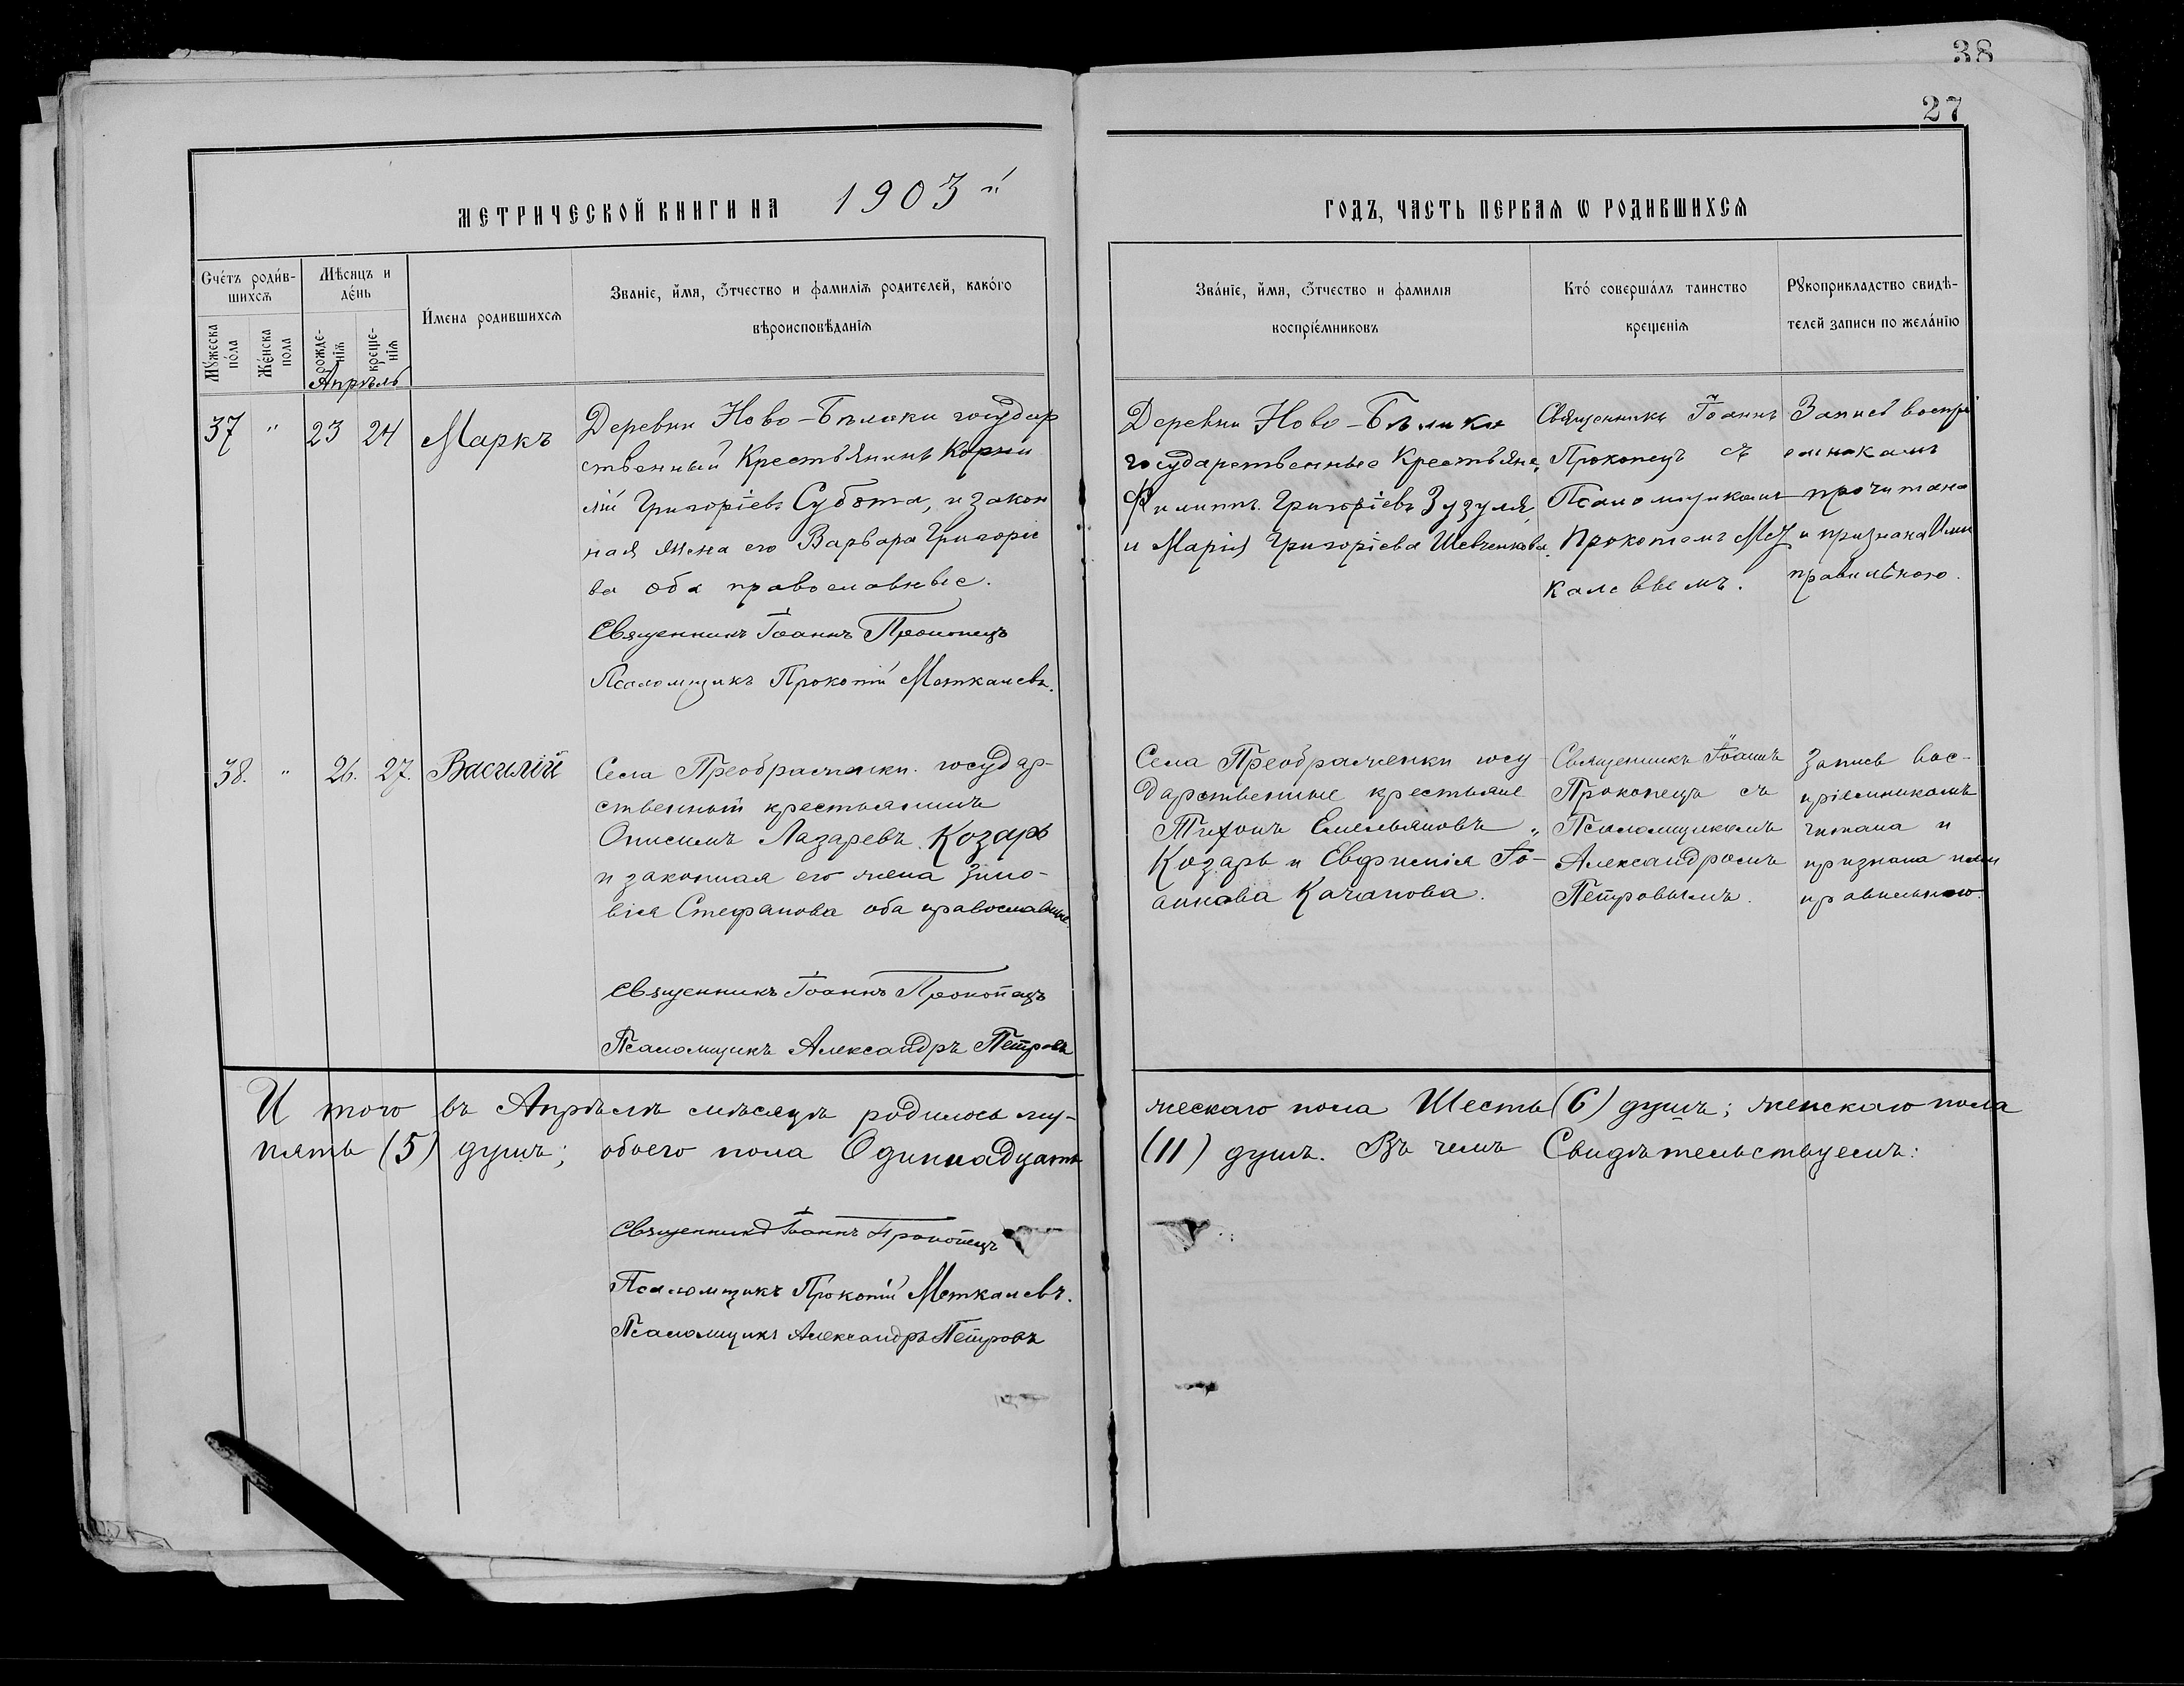 38
27
МЕТРИЧЕСКОЙ КНИГИ НА 1903 й
ГОДЪ, ЧАСТЬ ПЕРВАЯ Ѡ РОДИВШИХСѦ
Счétъ роди́в-
шихсѧ
Мꙋжеска
по́ла
Же́нска
пола
Мѣсяцъ и
де́нь
рожде-
нїѧ
креще-
нїѧ
И́мена родившихсѧ
Званїе, и́мя, ѻтчество и фамилїѧ родителей, како́го
вѣроисповѣданїѧ
Зва́нїе, и́мя, ѻтчество и фамилїя
воспрїе́мниковъ
Кто́ совершáлъ таинство
крещенїѧ
Рꙋкоприкладство свидѣ-
телей записи по желáнїю
Апрѣль
37 " 23 24 Маркъ
Деревни Ново-Бѣлики государ
ственный Крестьянинъ Корни
лій Григоріевъ Субота, и закон
ная жена его Варвара Григоріе
ва оба православные.
Священникъ Іоаннъ Прокопецъ
Псаломщикъ Прокопій Меткалевъ.
Деревни Ново-Бѣлики
государственные Крестьяне,
Филиппъ Григоріевъ Зузуля,
и Марія Григоріева Шевченкова.
Священникъ Іоаннъ
Прокопецъ съ
Псаломщикомъ
Прокопіемъ Мет
калевымъ.
Запись воспрі
емникамъ
прочитана
и признана Ими
правильною.
38. " 26. 27. Василій
Села Преображенки. государ-
ственный крестьянинъ
Онисимъ Лазаревъ Козарь
и законная его жена Зино-
вія Стефанова оба православные.
Священникъ Іоаннъ Прокопецъ
Псаломщикъ Александръ Петровъ
Села Преображенки госу-
дарственные крестьяне
Тихонъ Емельяновъ „
Козарь и Евфимія Іо-
аннова Качанова.
Священникъ Іоаннъ
Прокопецъ съ
Псаломщикомъ
Александромъ
Петровымъ.
Запись вос-
пріемникомъ
читана и
признана ими
правильною.
И того въ Апрѣлѣ мѣсяцѣ родилось му-
жескаго пола Шесть (6) душъ; женскаго пола
пять (5) душъ; обоего пола Одиннадцать
(11) душъ. Въ чемъ Свидѣтельствуемъ:
Священникъ Іоаннъ Прокопецъ
Псаломщикъ Прокопій Меткалевъ.
Псаломщикъ Александръ Петровъ